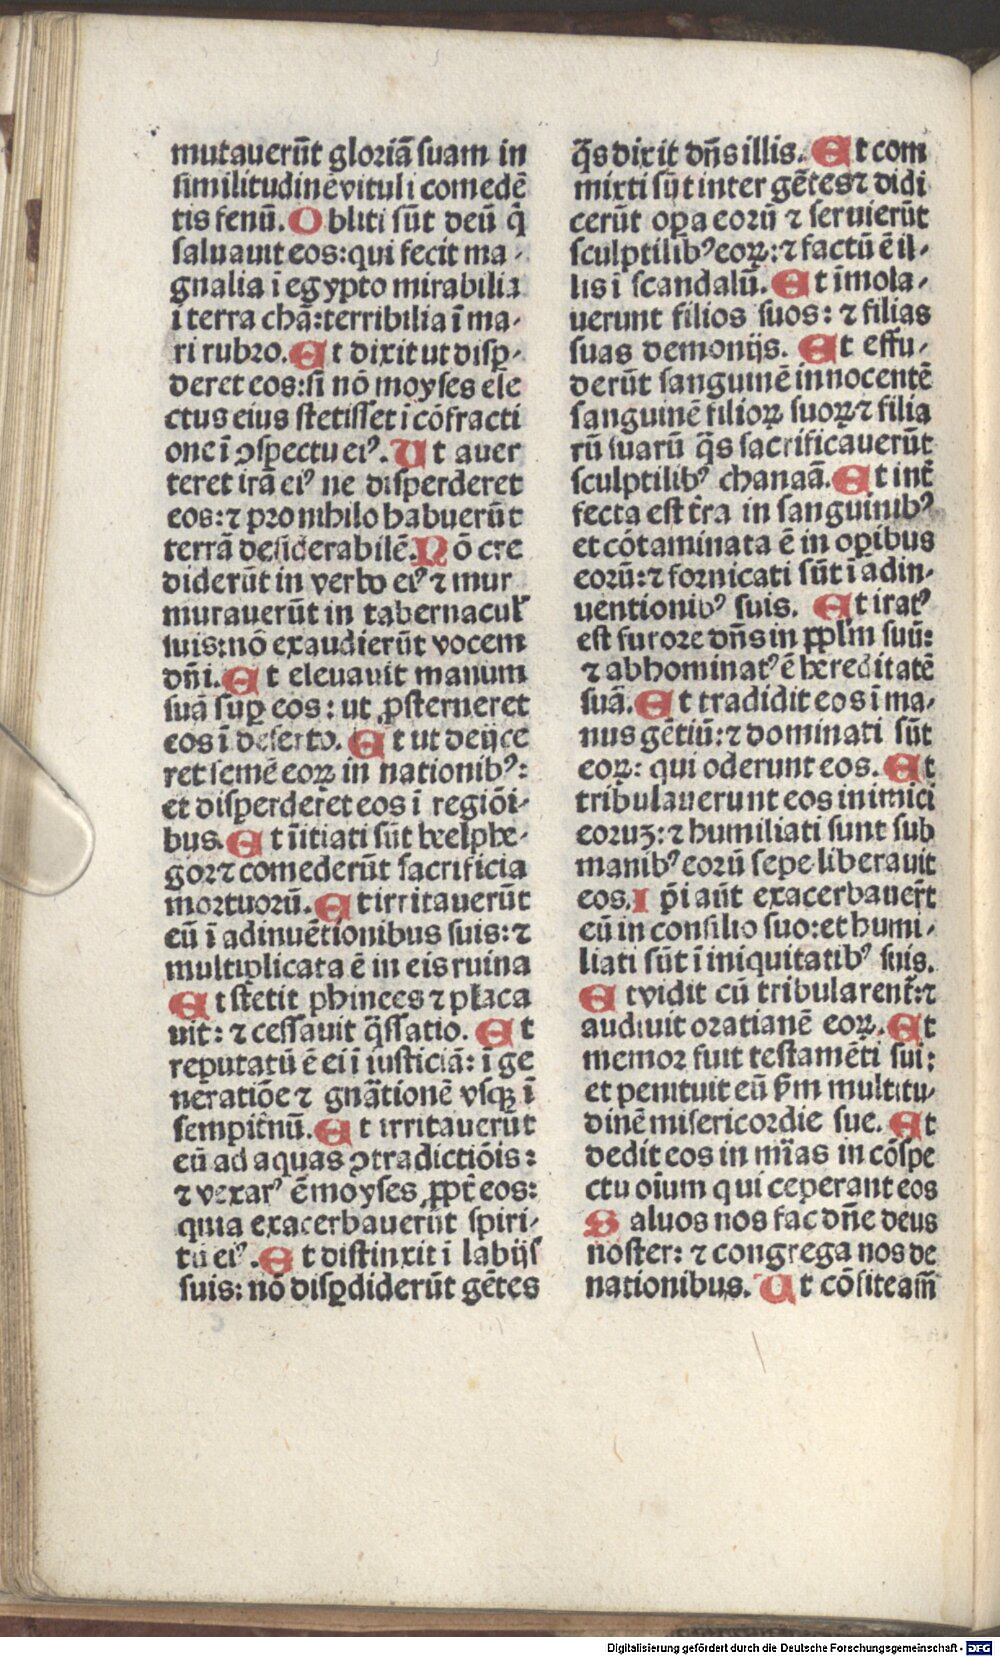 mutauerūt gloriā suam in
similitudinē vituli comedē
tis fenū. Obliti sūt deū q̄
saluauit eos: qui fecit ma-
gnalia ī egypto mirabilia
ī terra chā: terribilia ī ma-
ri rubro. Et dixit ut disꝑ-
deret eos: si nō moyses ele
ctus eius stetisset ī cōfracti
one ī ꝯspectu eiꝰ. Ut auer
teret irā eiꝰ ne disperderet
eos: ⁊ pro nihilo habuerūt
terrā desiderabilē. Nō cre
diderūt in verbo eiꝰ ⁊ mur
murauerūt in tabernacul'
suis: nō exaudierūt vocem
dn̄i. Et eleuauit manum
suā suꝑ eos: ut ꝓsterneret
eos ī deserto. Et ut deijce
ret semē eoꝝ in nationibꝰ:
et disperderet eos ī regiōi-
bus. Et īitiati sūt beelphe-
gor ⁊ comederūt sacrificia
mortuorū. Et irritauerūt
eū ī adinuētionibus suis: ⁊
multiplicata ē in eis ruina
Et stetit phinees ⁊ placa
uit: ⁊ cessauit q̄ssatio. Et
reputatū ē ei ī iusticiā: ī ge
neratiōe ⁊ gnātionē vsqꝫ ī
sempit̄nū. Et irritauerūt
eū ad aquas ꝯtradictiōis:
⁊ vexatꝰ ē moyses ꝓpt̄ eos:
quia exacerbauerūt spiri-
tū eiꝰ. Et distinxit ī labijs
suis: nō disꝑdiderūt gētes
q̄s dixit dn̄s illis. Et com
mixti sūt inter gētes ⁊ didi
cerūt oꝑa eorū ⁊ seruierūt
sculptilibꝰ eoꝝ: ⁊ factū ē il-
lis ī scandalū. Et īmola-
uerunt filios suos: ⁊ filias
suas demonijs. Et effu-
derūt sanguinē innocentē
sanguinē filioꝝ suoꝝ ⁊ filia
rū suarū q̄s sacrificauerūt
sculptilibꝰ chanaā. Et int̄
fecta est t̄ra in sanguinibꝰ
et cōtaminata ē in oꝑibus
eorū: ⁊ fornicati sūt ī adin-
uentionibꝰ suis. Et iratꝰ
est furore dn̄s in ꝓpl̄m suū:
⁊ abhominatꝰ ē hereditatē
suā. Et tradidit eos ī ma-
nus gētiū: ⁊ dominati sūt
eoꝝ: qui oderunt eos. Et
tribulauerunt eos inimici
eoruꝫ: ⁊ humiliati sunt sub
manibꝰ eorū sepe liberauit
eos. Ip̄i aūt exacerbauer̄t
eū in consilio suo: et humi-
liati sūt ī iniquitatibꝰ suis.
Et vidit cū tribularent̄: ⁊
audiuit oratianē eoꝝ. Et
memor fuit testamēti sui:
et penituit eū s̄m multitu-
dinē misericordie sue. Et
dedit eos in mīas in cōspe
ctu oīum qui ceperant eos
Saluos nos fac dn̄e deus
noster: ⁊ congrega nos de
nationibus. Ut cōfiteam̄
Digitalisierung gefördert durch die Deutsche Forschungsgemeinschaft - DFG